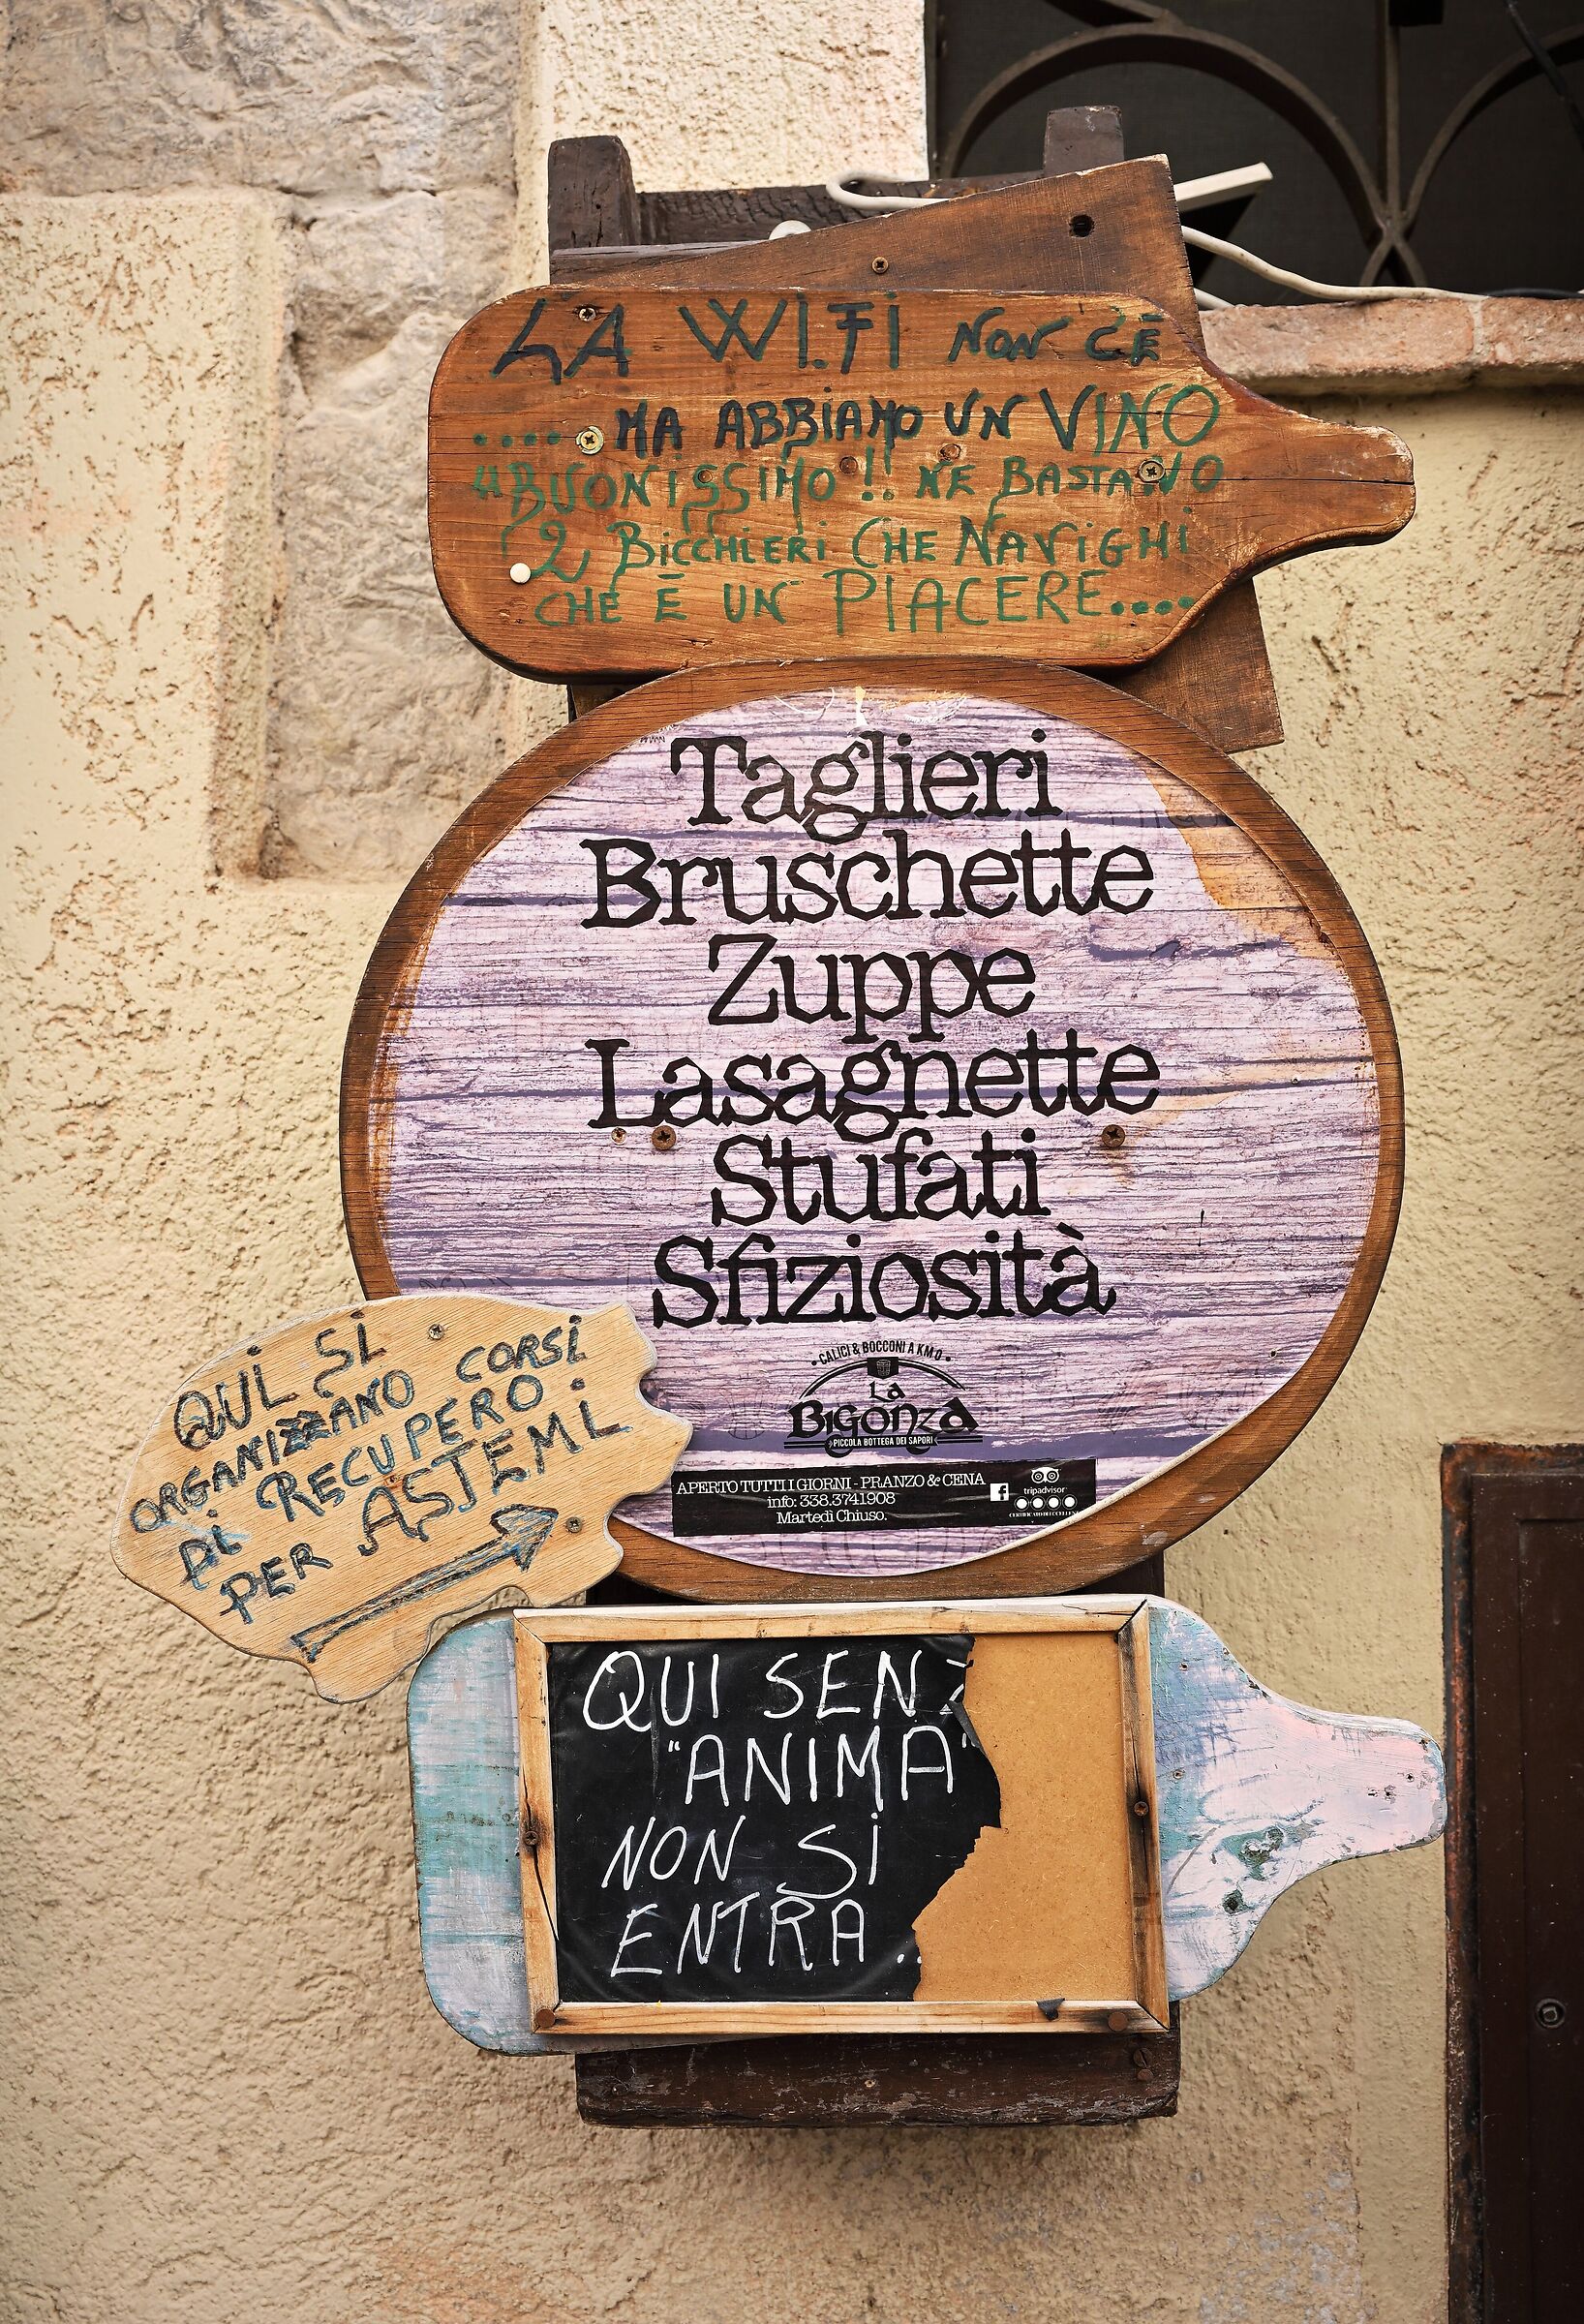 LA WI.FI NON C'È
.... MA ABBIAMO UN VINO
"BUONISSIMO!! NE BASTANO
2 BICCHIERI CHE NAVIGHI
CHE È UN PIACERE....
Taglieri
Bruschette
Zuppe
Lasagnette
Stufati
Sfiziosità
• CALICI & BOCCONI A KM.0 •
La
BIGONZA
PICCOLA BOTTEGA DEI SAPORI
APERTO TUTTI I GIORNI - PRANZO & CENA
info: 338.3741908
Martedì Chiuso.
f
tripadvisor
QUI SI
ORGANIZZANO CORSI
DI RECUPERO
PER ASTEMI
QUI SENZ
"ANIMA"
NON SI
ENTRA..